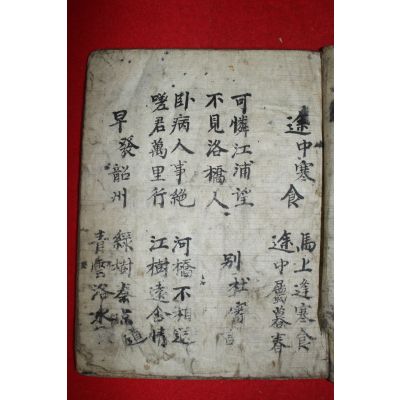 途中寒食
馬上逢寒食
途中屬暮春
可憐江浦望
不見洛橋人
別杜審言
卧病人事絶
嗟君萬里行
河橋不相送
江樹遠含情
早發韶州
綠樹秦京道
青雲洛水